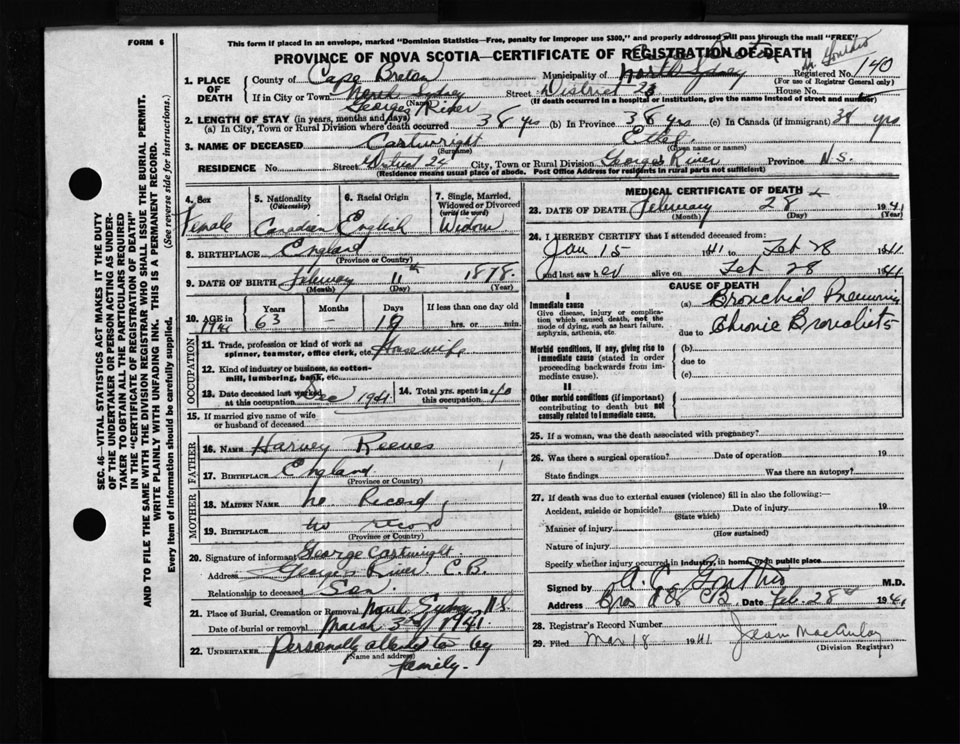 FORM 6
This form if placed in an envelope, marked "Dominion Statistics—Free, penalty for improper use $300," and properly addressed will pass through the mail "FREE"
PROVINCE OF NOVA SCOTIA—CERTIFICATE OF REGISTRATION OF DEATH
1. PLACE OF DEATH
County of Cape Breton Municipality of North Sydney Registered No. 140
(For use of Registrar General only)
If in City or Town North Sydney Street District 23 House No.
(Name) (If death occurred in a hospital or institution, give the name instead of street and number)
Georges River
2. LENGTH OF STAY (in years, months and days)
(a) In City, Town or Rural Division where death occurred 38 yrs (b) In Province 38 yrs (c) In Canada (if immigrant) 38 yrs
3. NAME OF DECEASED Cartwright Ethel
(Surname) (Given name or names)
RESIDENCE No. Street District 24 City, Town or Rural Division Georges River Province N.S.
(Residence means usual place of abode. Post Office Address for residents in rural parts not sufficient)
4. Sex Female
5. Nationality (Citizenship) Canadian
6. Racial Origin English
7. Single, Married, Widowed or Divorced (write the word) Widow
8. BIRTHPLACE England
(Province or Country)
9. DATE OF BIRTH February 11th 1878
(Month) (Day) (Year)
10. AGE in 1941 Years 63 Months - Days 19 If less than one day old hrs. or min.
OCCUPATION
11. Trade, profession or kind of work as spinner, teamster, office clerk, etc. Housewife
12. Kind of industry or business, as cotton-mill, lumbering, bank, etc.
13. Date deceased last worked at this occupation Dec 1941 14. Total yrs. spent in this occupation 40
15. If married give name of wife or husband of deceased
FATHER
16. NAME Harvey Reeves
17. BIRTHPLACE England
(Province or Country)
MOTHER
18. MAIDEN NAME No Record
19. BIRTHPLACE no record
(Province or Country)
20. Signature of informant George Cartwright
Address Georges River. C.B.
Relationship to deceased Son
21. Place of Burial, Cremation or Removal North Sydney N.S.
Date of burial or removal March 3rd 1941
22. UNDERTAKER Personally attended to by family.
(Name and address)
MEDICAL CERTIFICATE OF DEATH
23. DATE OF DEATH February 28 1941
(Month) (Day) (Year)
24. I HEREBY CERTIFY that I attended deceased from:
Jan 15 1941 to Feb 28 1941
and last saw her alive on Feb 28 1941
CAUSE OF DEATH
I
Immediate cause
Give disease, injury or complication which caused death, not the mode of dying, such as heart failure, asphyxia, asthenia, etc.
(a) Bronchial Pneumonia
due to Chronic Bronchitis
Morbid conditions, if any, giving rise to immediate cause (stated in order proceeding backwards from immediate cause).
(b)
due to
(c)
II
Other morbid conditions (if important) contributing to death but not causally related to immediate cause.
25. If a woman, was the death associated with pregnancy?
26. Was there a surgical operation? Date of operation 19
State findings Was there an autopsy?
27. If death was due to external causes (violence) fill in also the following:—
Accident, suicide or homicide? Date of injury 19
(State which)
Manner of injury
(How sustained)
Nature of injury
Specify whether injury occurred in industry, in home, or in public place
Signed by M.D.
Address Date Feb. 28th 1941
28. Registrar's Record Number
29. Filed Mar 18 1941 Jean MacAulay
(Division Registrar)
SEC. 46—VITAL STATISTICS ACT MAKES IT THE DUTY
OF THE UNDERTAKER OR PERSON ACTING AS UNDER-
TAKER TO OBTAIN ALL THE PARTICULARS REQUIRED
IN THE "CERTIFICATE OF REGISTRATION OF DEATH"
AND TO FILE THE SAME WITH THE DIVISION REGISTRAR WHO SHALL ISSUE THE BURIAL PERMIT.
WRITE PLAINLY WITH UNFADING INK. THIS IS A PERMANENT RECORD.
Every item of information should be carefully supplied. (See reverse side for instructions.)